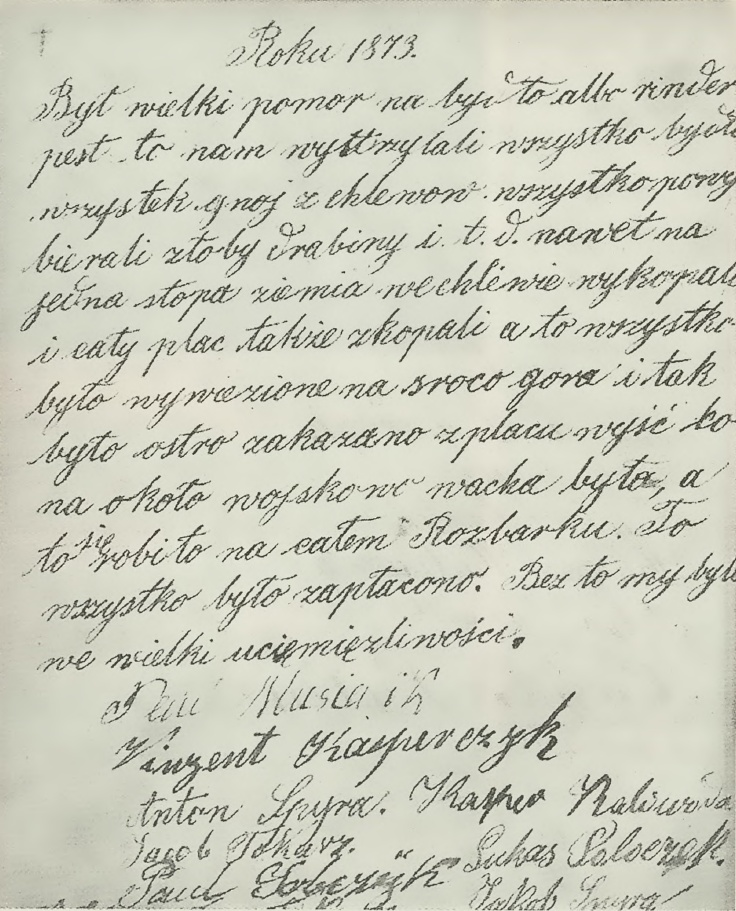 Roku 1873.
Był wielki pomor na bydło albo rinder
pest to nam wyttrzylali wszystko bydło
wszystek gnoj z chlewow wszystko powy
bierali złoby drabiny i. t. d. nawet na
jedna stopa ziemia we chlewie wykopali
i cały plac także zkopali a to wszystko
było wywiezione na sroco gora i tak
było ostro zakazano z placu wyść bo
na około wojskowo wacha była, a
to się robiło na całem Rozbarku. To
wszystko było zapłacono. Bez to my byli
we wielki uciemięzliwości.
Paul Musialik
Vinzent Kasperczyk
Anton Spyra. Kasper
Jacob Tokarz. Lukas
Paul
Jakob Spyra